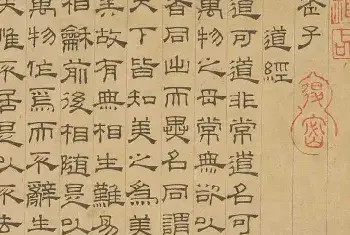 老子
道經
道可道非常道名可
萬物之母常無欲以
者同出而異名同謂
天下皆知美之為美
故有無相生難易
相龢前後相隨是以
萬物作焉而不辭生
夫惟不居是以不去